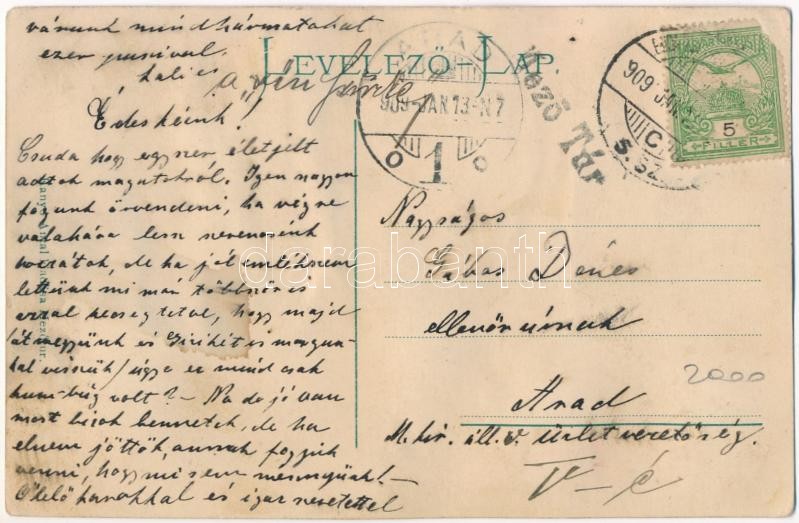 várunk mindhármatokat
ezer puszival
LEVELEZŐ-LAP.
ARAD
909 JAN 13-N7
1
Mező Túr
909 JAN
MAGYAR KIR. POSTA
5
FILLER
Édeskéink!
Csuda hogy egyszer életjelt
adtok magatokról. Igen nagyon
fogunk örvendeni, ha végre
valahára lesz szerencsénk
hozzátok, de ha jól emlékszem
lettünk mi már többször is
azzal kecsegtetve, hogy majd
átmegyünk és is magun-
kal visszük / úgye ez mind csak
hum-búg volt? - Na de jó van
most bízok bennetek, de ha
elnem jöttök, annak fogjuk
venni, hogy mi sem mennyünk! -
Ölelő karokkal és igaz szeretettel
Nagyságos
Gábos Dénes
ellenőr úrnak
Arad
M. kir. áll. v. üzletvezetőség.
2000
darabanth